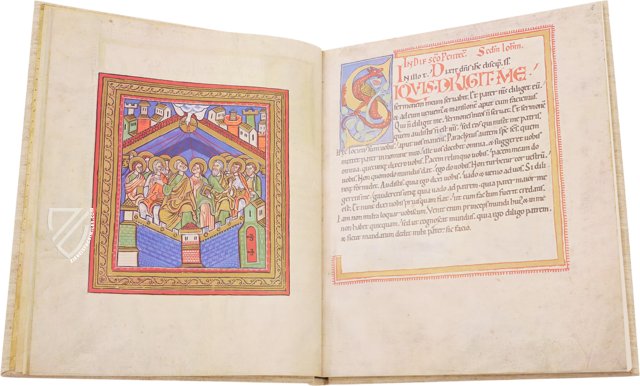 IN DIE SCO PENTEC. Scdm Iohm.
IN illo t. Dixit dns ihc discip. s.
SIQVIS DILIGIT ME
sermonem meum servabit. Et pater meus diliget eū
& ad eum veniemus & mansionem apud eum faciemus
Qui n diligit me. sermones meos n servat. Et sermonē
quem audistis n est meus. Sed ei qui misit me patris.
apud vos manens. Paraclitus autem sps scs. quem
mittet pater in nomine meo ille vos docebit omnia. & suggeret vobis
omnia quecumque dixero vobis. Pacem relinquo vobis. pacem meam do
vobis. Non quomodo mundus dat. ego do vobis. Non turbetur cor vestrū.
neque formidet. Audistis quia ego dixi vobis. vado & venio ad vos. Si dili
geretis me. gauderetis utique quia vado ad patrem. quia pater maior me
est. Et nunc dixi vobis priusquam fiat. ut cum factum fuerit credatis.
Iam non multa loquar vobiscum. Venit enim princeps mundi huius & in me
non habet quicquam. Sed ut cognoscat mundus. quia ego diligo patrem.
& sicut mandatum dedit mihi pater. sic facio.